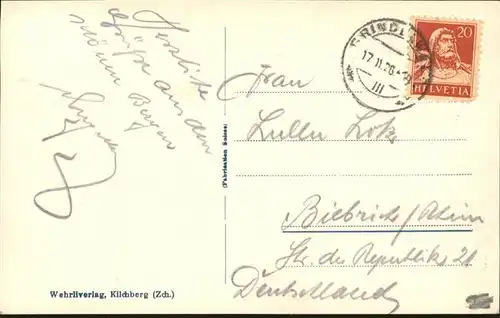 Herzliche
Grüße aus den
schönen Bergen
Wehrliverlag, Kilchberg (Zch.)
(Fabrication Suisse)
17.II.26
III
20
HELVETIA
Frau
Lullu Lotz
Biebrich/Rhein
Str. der Republik 21
Deutschland